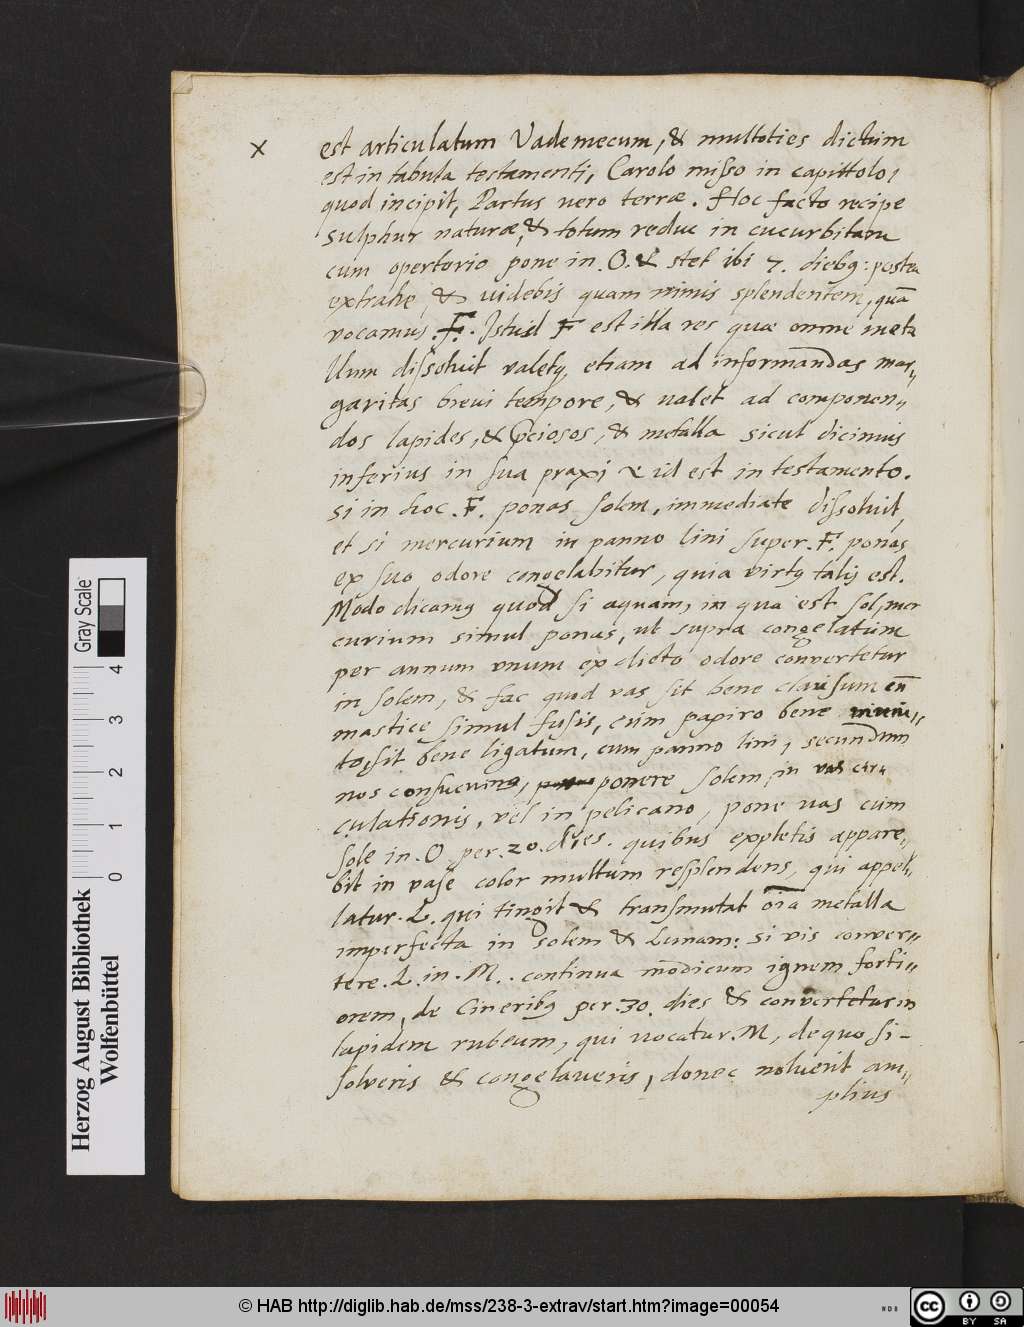 x est articulatum Vade mecum, & multoties dictum
est in tabula testamenti, Carolo misso in capittolo,
quod incipit, Partus uero terræ. Hoc facto recipe
sulphur naturæ, & totum reduc in cucurbitam
cum opertorio pone in .O. & stet ibi 7. dieb9: postea
extrahe & uidebis quam nimis splendentem, quā
vocamus .F. Istud F est illa res quæ omne meta
llum dissoluit valet9, etiam ad informandas mar„
garitas breui tempore, & ualet ad componen„
dos lapides, & p̄ciosos, & metalla sicut dicimus
inferius in sua praxi & id est in testamento.
si in hoc .F. ponas solem, immediate dissoluit,
et si mercurium in panno lini super .F. ponas
ex suo odore congelabitur, quia virt9 talis est.
Modo dicam9 quod si aquam, in qua est sol, mer
curium simul ponas, ut supra congelatum
per annum vnum ex dicto odore convertetur
in solem, & fac quod vas sit bene clausum cū
mastice simul fusis, cum papiro bene
to, sit bene ligatum, cum panno lini, secundum
nos consueuim9, ponere solem, in vas cir„
culationis, vel in pelicano, pone uas cum
sole in .O per .20. dies. quibus expletis appare„
bit in vase color multum resplendens, qui appel„
latur .L. qui tingit & transmutat oīa metalla
imperfecta in solem & Lunam: si vis conver„
tere .L. in .M.. continua modicum ignem forti„
orem, de Cinerib9 per .30. dies & convertetur in
lapidem rubeum, qui uocatur .M, de quo si-
solveris & congelaueris, donec noluerit am„
plius
Herzog August Bibliothek
Wolfenbüttel
0 1 2 3 4
Gray Scale
© HAB http://diglib.hab.de/mss/238-3-extrav/start.htm?image=00054
NDB
cc BY SA